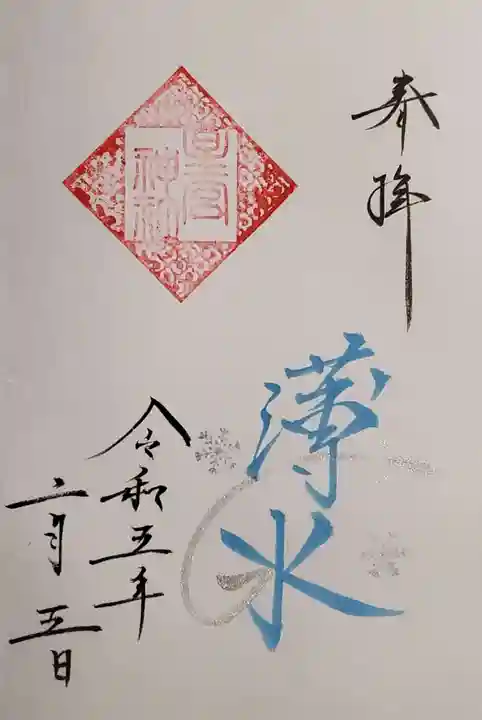 奉拝
薄水
神社
令和五年
二月五日